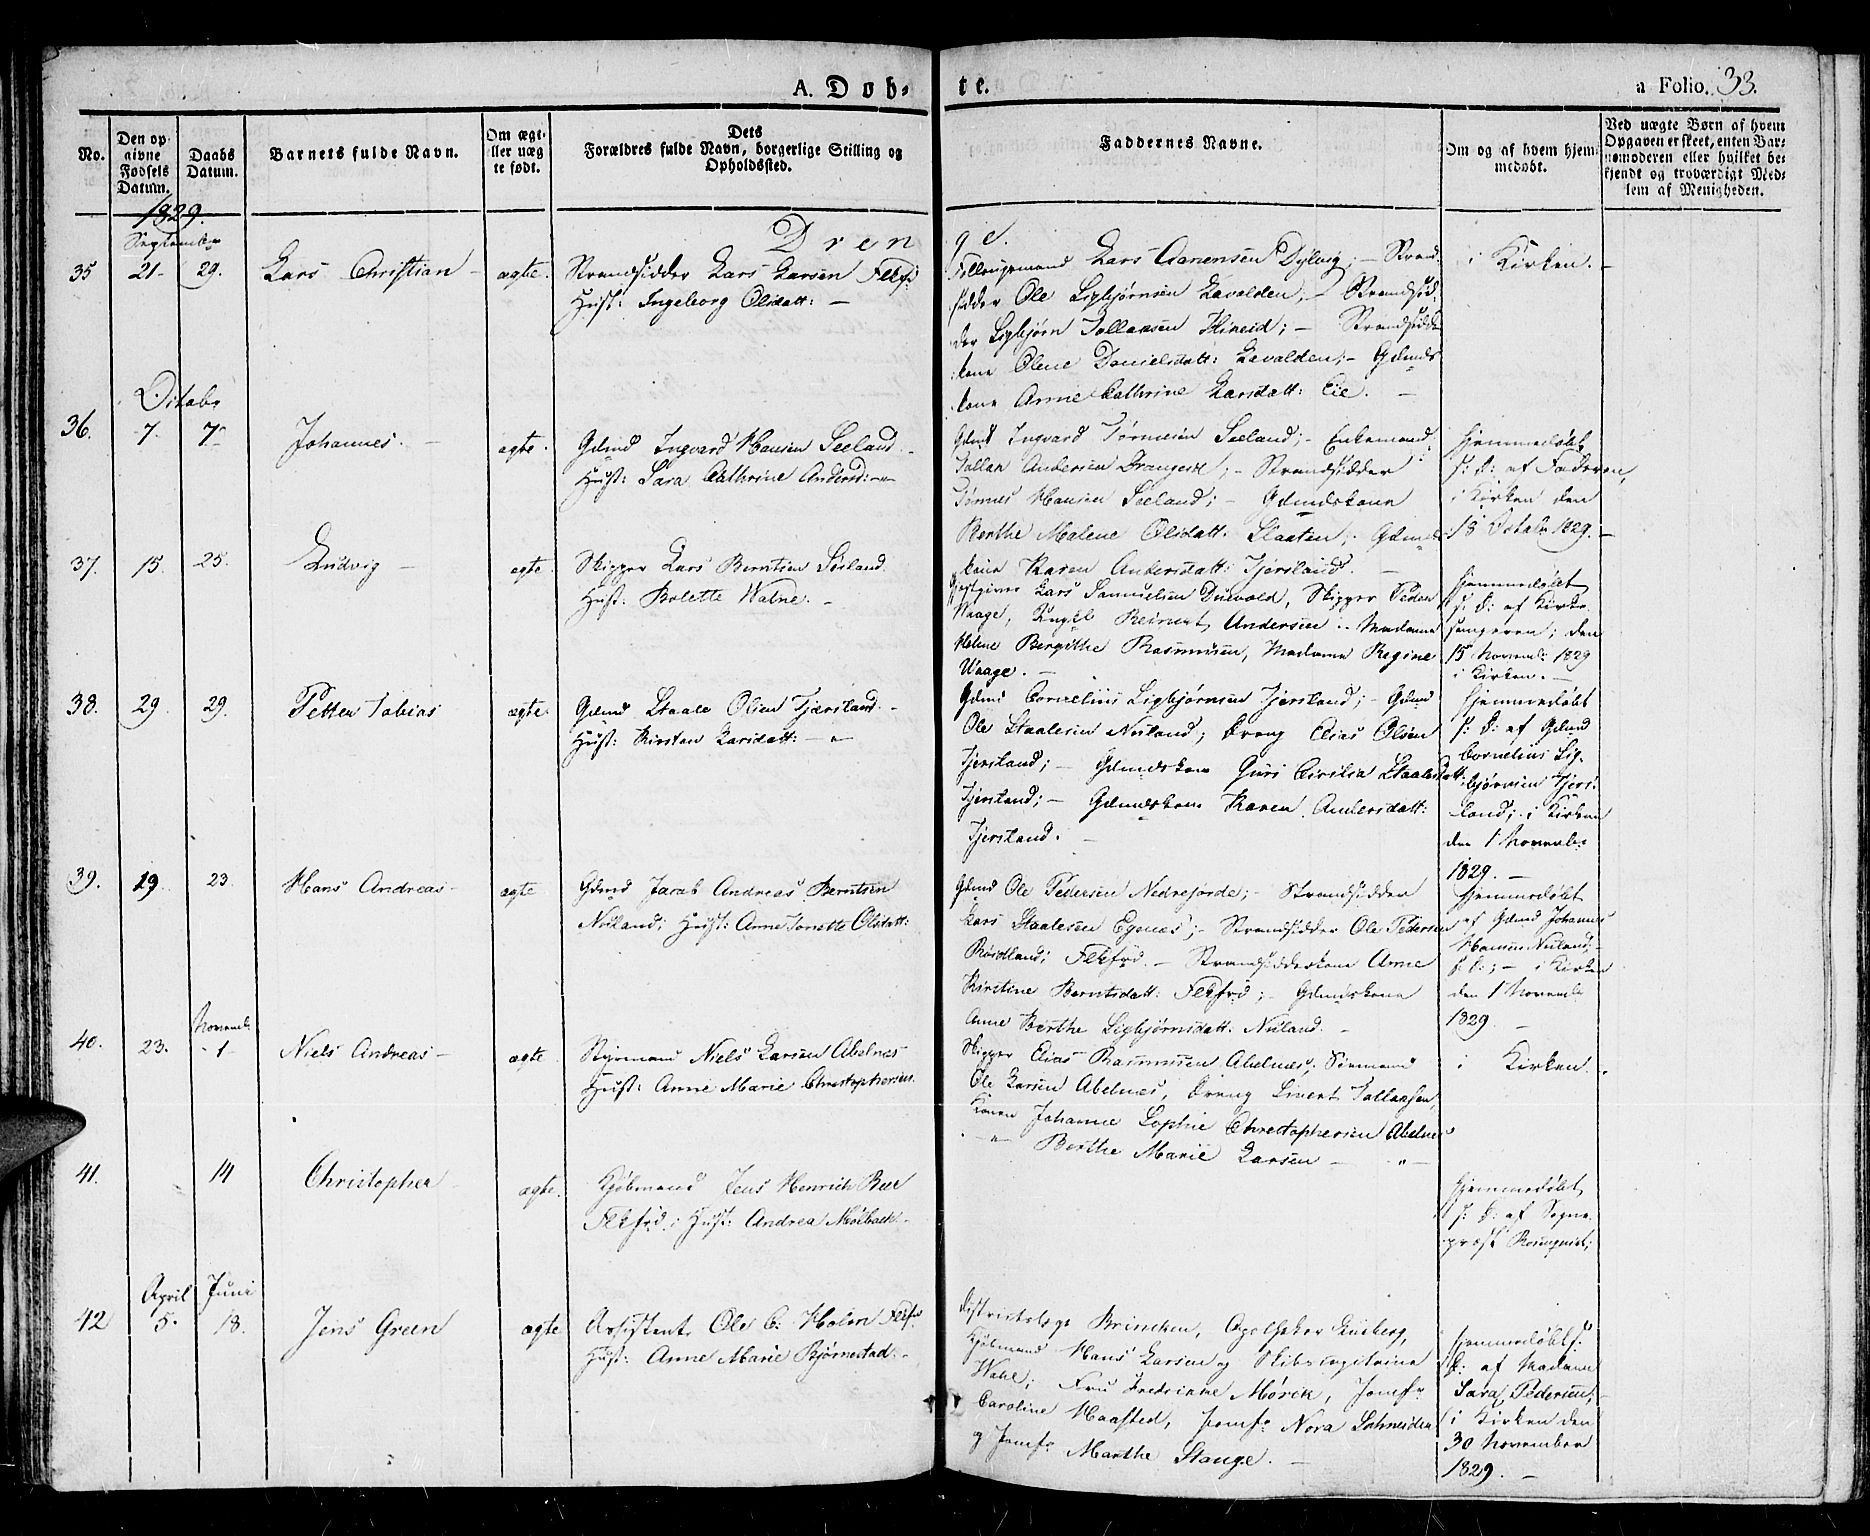 A. Døb-
te.
a Folio. 33.
No.
Den opgivne Fødsels Datum.
Daabs Datum.
Barnets fulde Navn.
Om ægte eller uægte født.
Dets
Forældres fulde Navn, borgerlige Stilling og
Opholdssted.
Faddernes Navne.
Om og af hvem hjemmedøbt.
Ved uægte Børn af hvem
Opgaven er skeet, enten Barnemoderen eller hvilket bekjendt og troværdigt Medlem af Menigheden.
1829.
Drenge.
September
35 21 29. Lars Christian ægte. Strandsidder Lars Larsen Flkf:
Hust: Ingeborg Olsdatt: —
Lars Aanensen Dybvig; — Strand-
sidder Ole Sigbjørnsen Lavolden, — Strandsid-
der Sigbjørn Tollaksen Hineid; — Strandsidder
kone Olene Danielsdatt: Lavolden; — Gdmds
kone Anne Cathrine Larsdatt: Eie. —
i Kirken. —
Octobr
36. 7. 7 Johannes. — ægte. Gdmd Ingvard Hansen Seeland. —
Hust: Sara Cathrine Andersd: — "
Gdmd Ingvard Tørnesen Seeland; — Enkemand
Tollak Andersen Drangeid; — Strandsidder
Tønnes Hansen Seeland; — Gdmdskone
Berthe Malene Olsdatt: Staaten; — Gdmds
kone Karen Andersdatt: Tjersland. —
Hjemmedøbt
s: D: af Faderen,
i Kirken den
15 Octobr 1829. —
37. 15. 25. Ludvig — ægte. Skipper Lars Berntsen Seeland
Hust: Bolette Wahne. —
Gjestgiver Lars Samuelsen Duevold, Skipper Peder
Waage, Ungkl Reinert Andersen. Madame
Helene Bergithe Rasmussen, Madame Regine
Waage. —
Hjemmedøbt
s: D: af Kirke-
sangeren; den
15 Novemb: 1829
i Kirken. —
38. 29 29. Petter Tobias ægte. Gdmd Staale Olsen Tjersland. —
Hust: Kirsten Larsdatt: — "
Gdmd Cornelius Sigbjørnsen Tjersland; — Gdmd
Ole Staalesen Nuland; Dreng Elias Olsen
Tjersland; — Gdmdskone Guri Cicilia Staalesdatt:
Tjersland; — Gdmdskone Karen Andersdatt:
Tjersland. —
Hjemmedøbt
s: D: af Gdmd
Cornelius Sig-
bjørnsen Tjers-
land; i Kirken
den 1 Novembr
1829. —
39. 19 23. Hans Andreas — ægte Gdmd Jacob Andreas Berntsen
Nuland; Hust: Anne Tonette Olsdatt:
Gdmd Ole Pedersen Nedrejorde; — Strandsidder
Lars Staalesen Egenes; — Strandsidder Ole Pedersen
Røidland; Flkfrd. — Strandsidderkone Anne
Kirstine Berntsdatt: Flkfrd; — Gdmdskone
Anne Berthe Sigbjørnsdatt: Nuland. —
Hjemmedøbt
af Gdmd Johannes
Hansen Nuland;
s: D:; — i Kirken
den 1 Novemb
1829. —
Novemb:
40. 23. 1 Niels Andreas — ægte Styrmand Niels Larsen Abelnes
Hust: Anne Marie Christophersen.
Skipper Elias Rasmussen Abelnes; Sømand
Ole Larsen Abelnes, Dreng Sivert Tollaksen,
Konen Johanne Sophie Christophersen Abelnes
— " — Berthe Marie Larsen — " —
i Kirken.
41. 14 Christopher ægte. Kjøbmand Jens Henrich Beer
Flkfrd; Hust: Andrea Mølbach —
Hjemmedøbt
s: D: af Sogne-
præst Rosenqvist;
April Juni
42 5. 18. Jens Green ægte Assistent Ole C: Holm Flkf:
Hust: Anne Marie Bjørnestad. —
Districtslæge Brincken, Apotheker
Kjøbmand Hans Larsen og Skibscapitaine
Wahl; Fru Fredrikke Mørck, Jomfr
Caroline Haasted, Jomfr Nora Schneider
og Jomfr Marthe Stange. —
Hjemmedøbt s:
D: af Madam
Sara Pedersen,
i Kirken den
30 November
1829. —